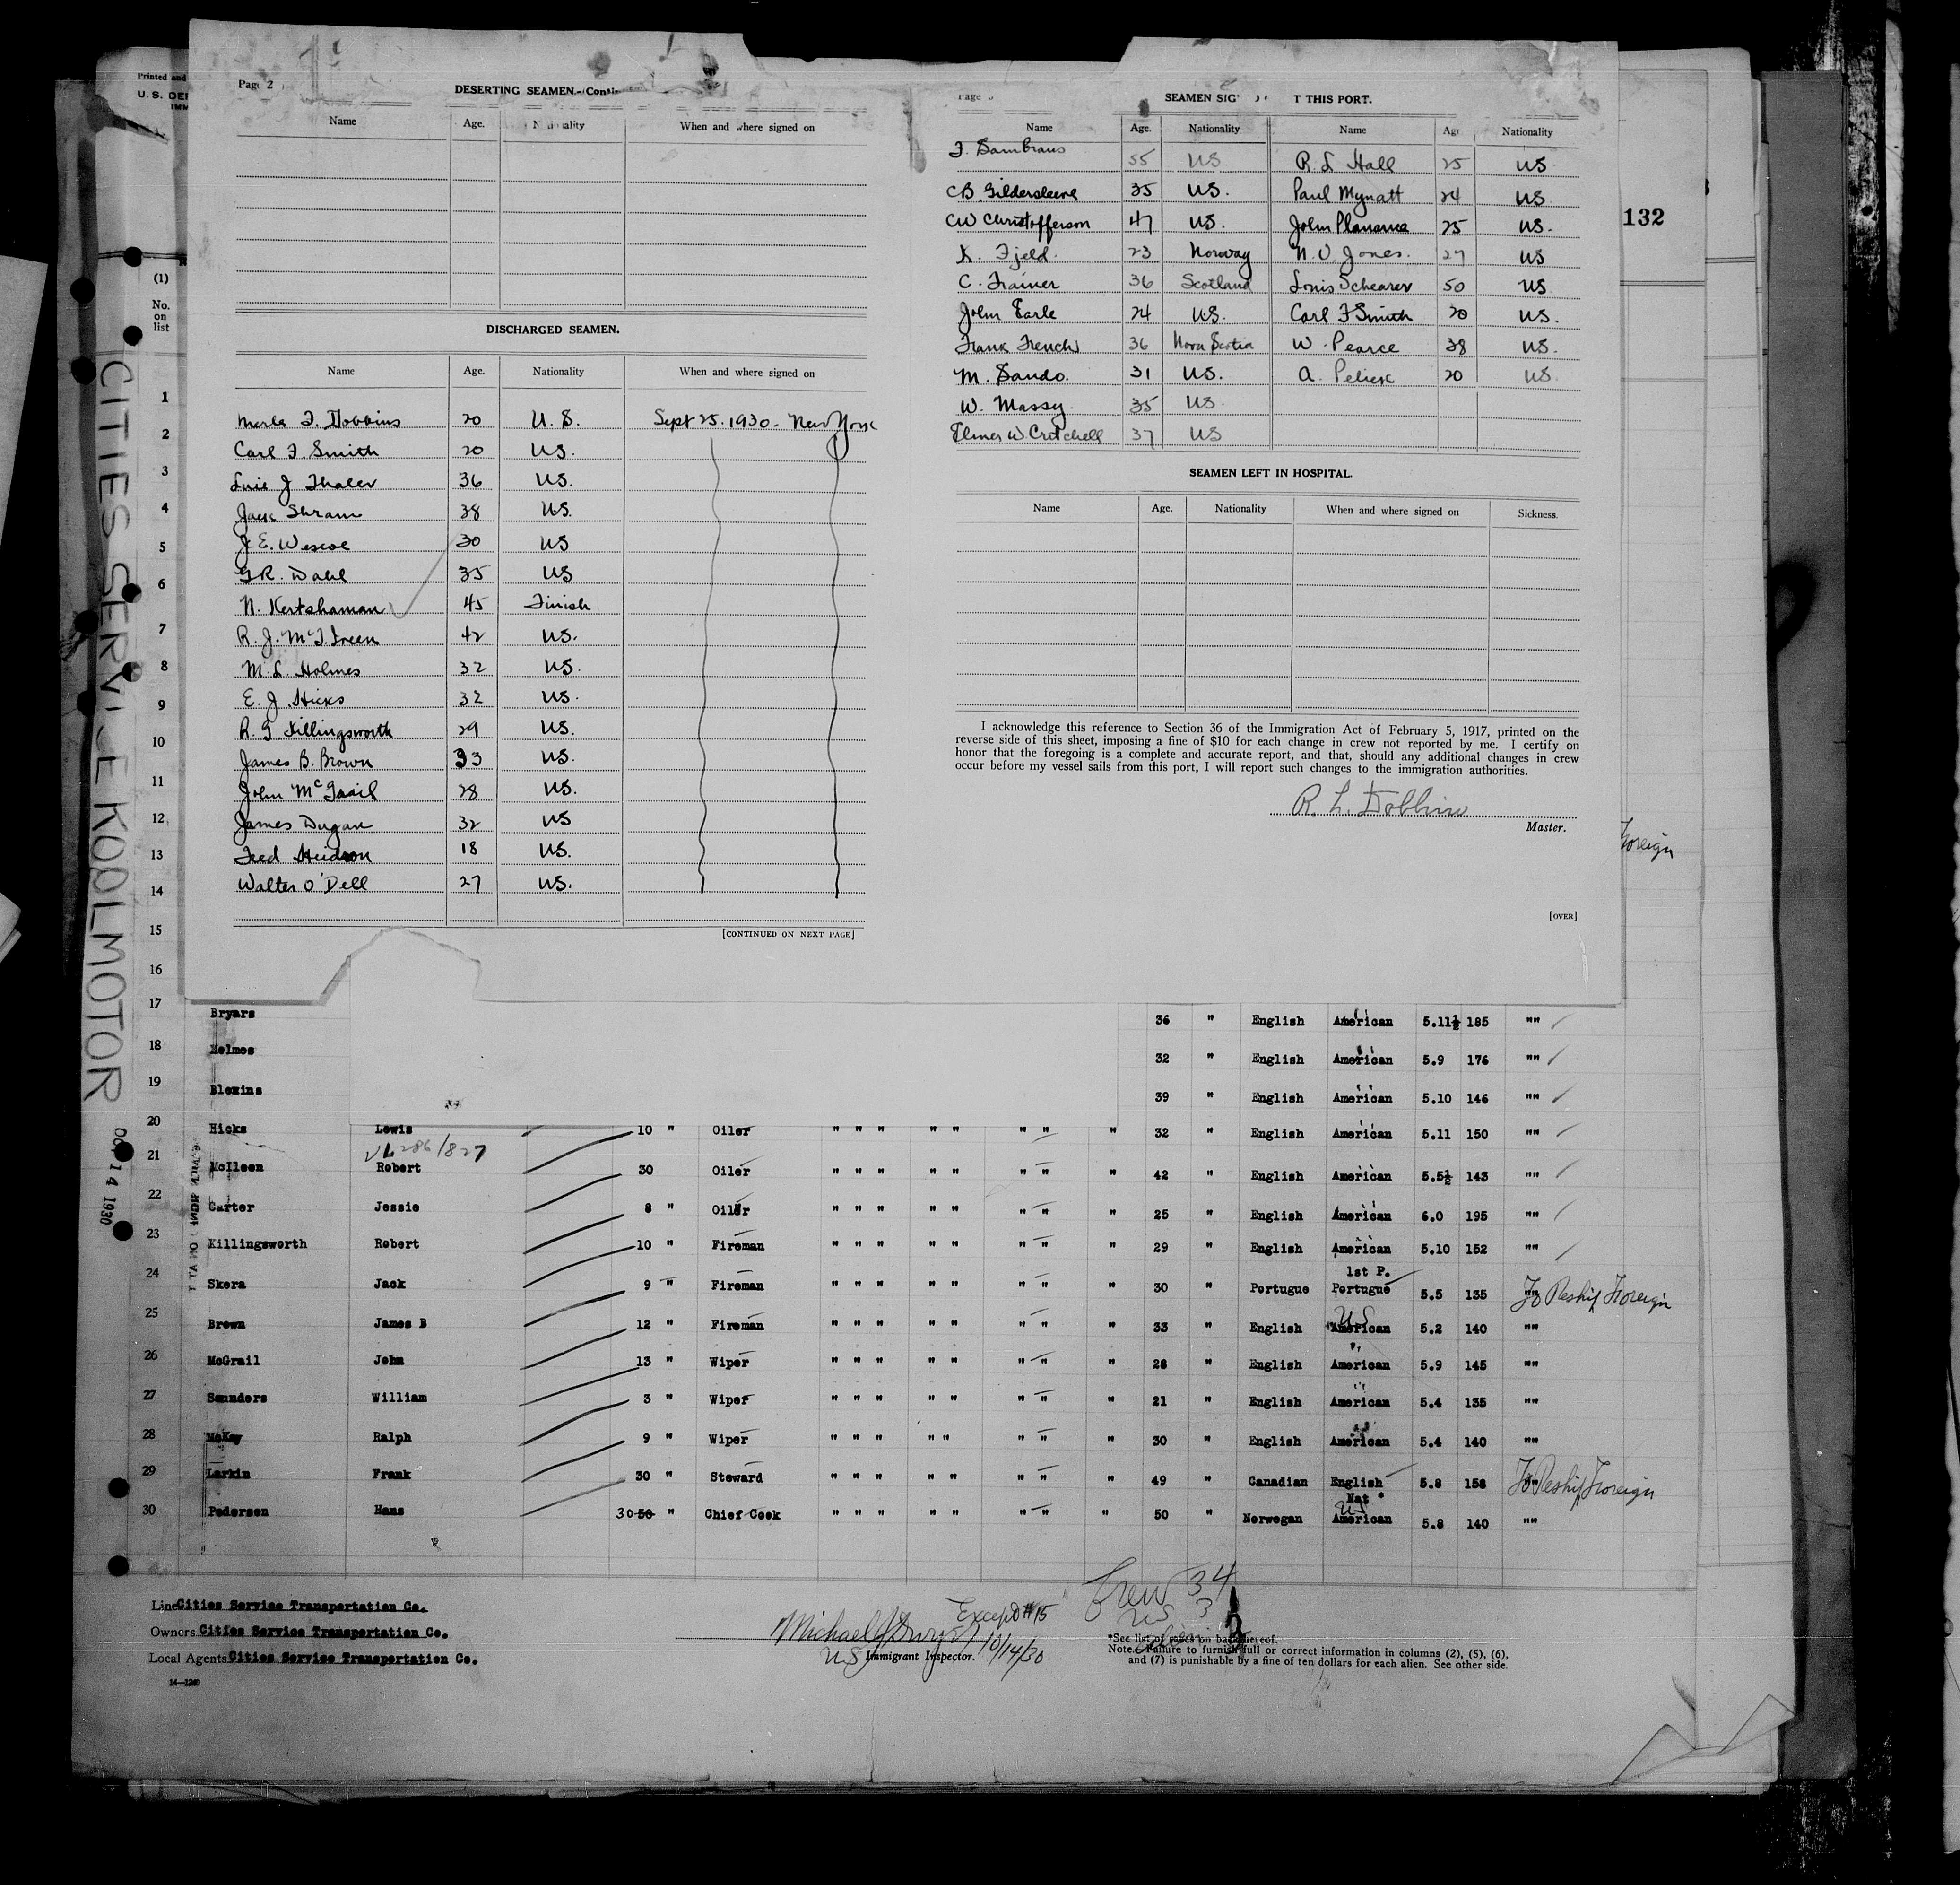 Printed and
U. S. DE
IMM
(1)
No.
on
list
CITIES SERVICE KOOLMOTOR
OCT 14 1930
Page 2
DESERTING SEAMEN.-(Contin
Name Age. Nationality When and where signed on
DISCHARGED SEAMEN.
Name Age. Nationality When and where signed on
Merle F. Dobbins 20 U. S. Sept 25. 1930 - New York
Carl F. Smith 20 US.
J Thaler 36 US.
Jack Shram 38 US.
J. E. Wescoe 30 US
G R. Dahl 35 US
N. Kertshaman 45 Finish
R. J. McIlreen 42 US.
M. L. Holmes 32 US.
E. J. Hicks 32 US.
R. G Killingsworth 29 US.
James B. Brown 33 US.
John McGrail 28 US.
James Dugan 32 US
Fred Hudson 18 US.
Walter O'Dell 27 US.
[CONTINUED ON NEXT PAGE]
Page
SEAMEN SIG T THIS PORT.
Name Age. Nationality Name Age Nationality
55 US R. L Hall 25 US
CB. Gildersleeve 35 US. Paul Mynatt 24 US
CW Christofferson 47 US. John 25 US.
K. Fjeld. 23 Norway N. O. Jones. 27 US
C. Trainer 36 Scotland Louis Schearer 50 US
John Earle 24 US. Carl F Smith 20 US.
Frank French 36 Nova Scotia W. Pearce 38 US.
M. Sando. 31 US. A. 20 US.
W. Massy 35 US
Elmer W. Critchell 37 US
SEAMEN LEFT IN HOSPITAL.
Name Age. Nationality When and where signed on Sickness.
I acknowledge this reference to Section 36 of the Immigration Act of February 5, 1917, printed on the
reverse side of this sheet, imposing a fine of $10 for each change in crew not reported by me. I certify on
honor that the foregoing is a complete and accurate report, and that, should any additional changes in crew
occur before my vessel sails from this port, I will report such changes to the immigration authorities.
R. L. Dobbins
Master.
[OVER]
132
Foreign
1
2
3
4
5
6
7
8
9
10
11
12
13
14
15
16
17 Bryars 36 " English American 5.11½ 185 ""
18 Holmes 32 " English American 5.9 176 ""
19 Blewins 39 " English American 5.10 146 ""
20 Hicks Lewis 10 " Oiler " " " " " " " " 32 " English American 5.11 150 ""
VL 286/827
21 McIleen Robert 30 Oiler " " " " " " " " 42 " English American 5.5½ 143 ""
22 Carter Jessie 8 " Oiler " " " " " " " " 25 " English American 6.0 195 ""
23 Killingsworth Robert 10 " Fireman " " " " " " " " 29 " English American 5.10 152 ""
1st P.
24 Skera Jack 9 " Fireman " " " " " " " " 30 " Portugue Portugue 5.5 135 "" To Reship Foreign
US
25 Brown James B 12 " Fireman " " " " " " " " 33 " English American 5.2 140 ""
26 McGrail John 13 " Wiper " " " " " " " " 28 " English American 5.9 145 ""
27 Saunders William 3 " Wiper " " " " " " " " 21 " English American 5.4 135 ""
28 McKay Ralph 9 " Wiper " " " " " " " " 30 " English American 5.4 140 ""
29 Larkin Frank 30 " Steward " " " " " " " " 49 " Canadian English 5.8 158 "" To Reship Foreign
Nat *
US
30 Pedersen Hans 30 50 " Chief Cook " " " " " " " " 50 " Norwegan American 5.8 140 ""
Line Cities Service Transportation Co.
Owners Cities Service Transportation Co.
Local Agents Cities Service Transportation Co.
14—1240
Except #15
Michael 10/14/30
US Immigrant Inspector.
Crew 34
US 3
*See list of races on back hereof.
Note.—Failure to furnish full or correct information in columns (2), (5), (6),
and (7) is punishable by a fine of ten dollars for each alien. See other side.